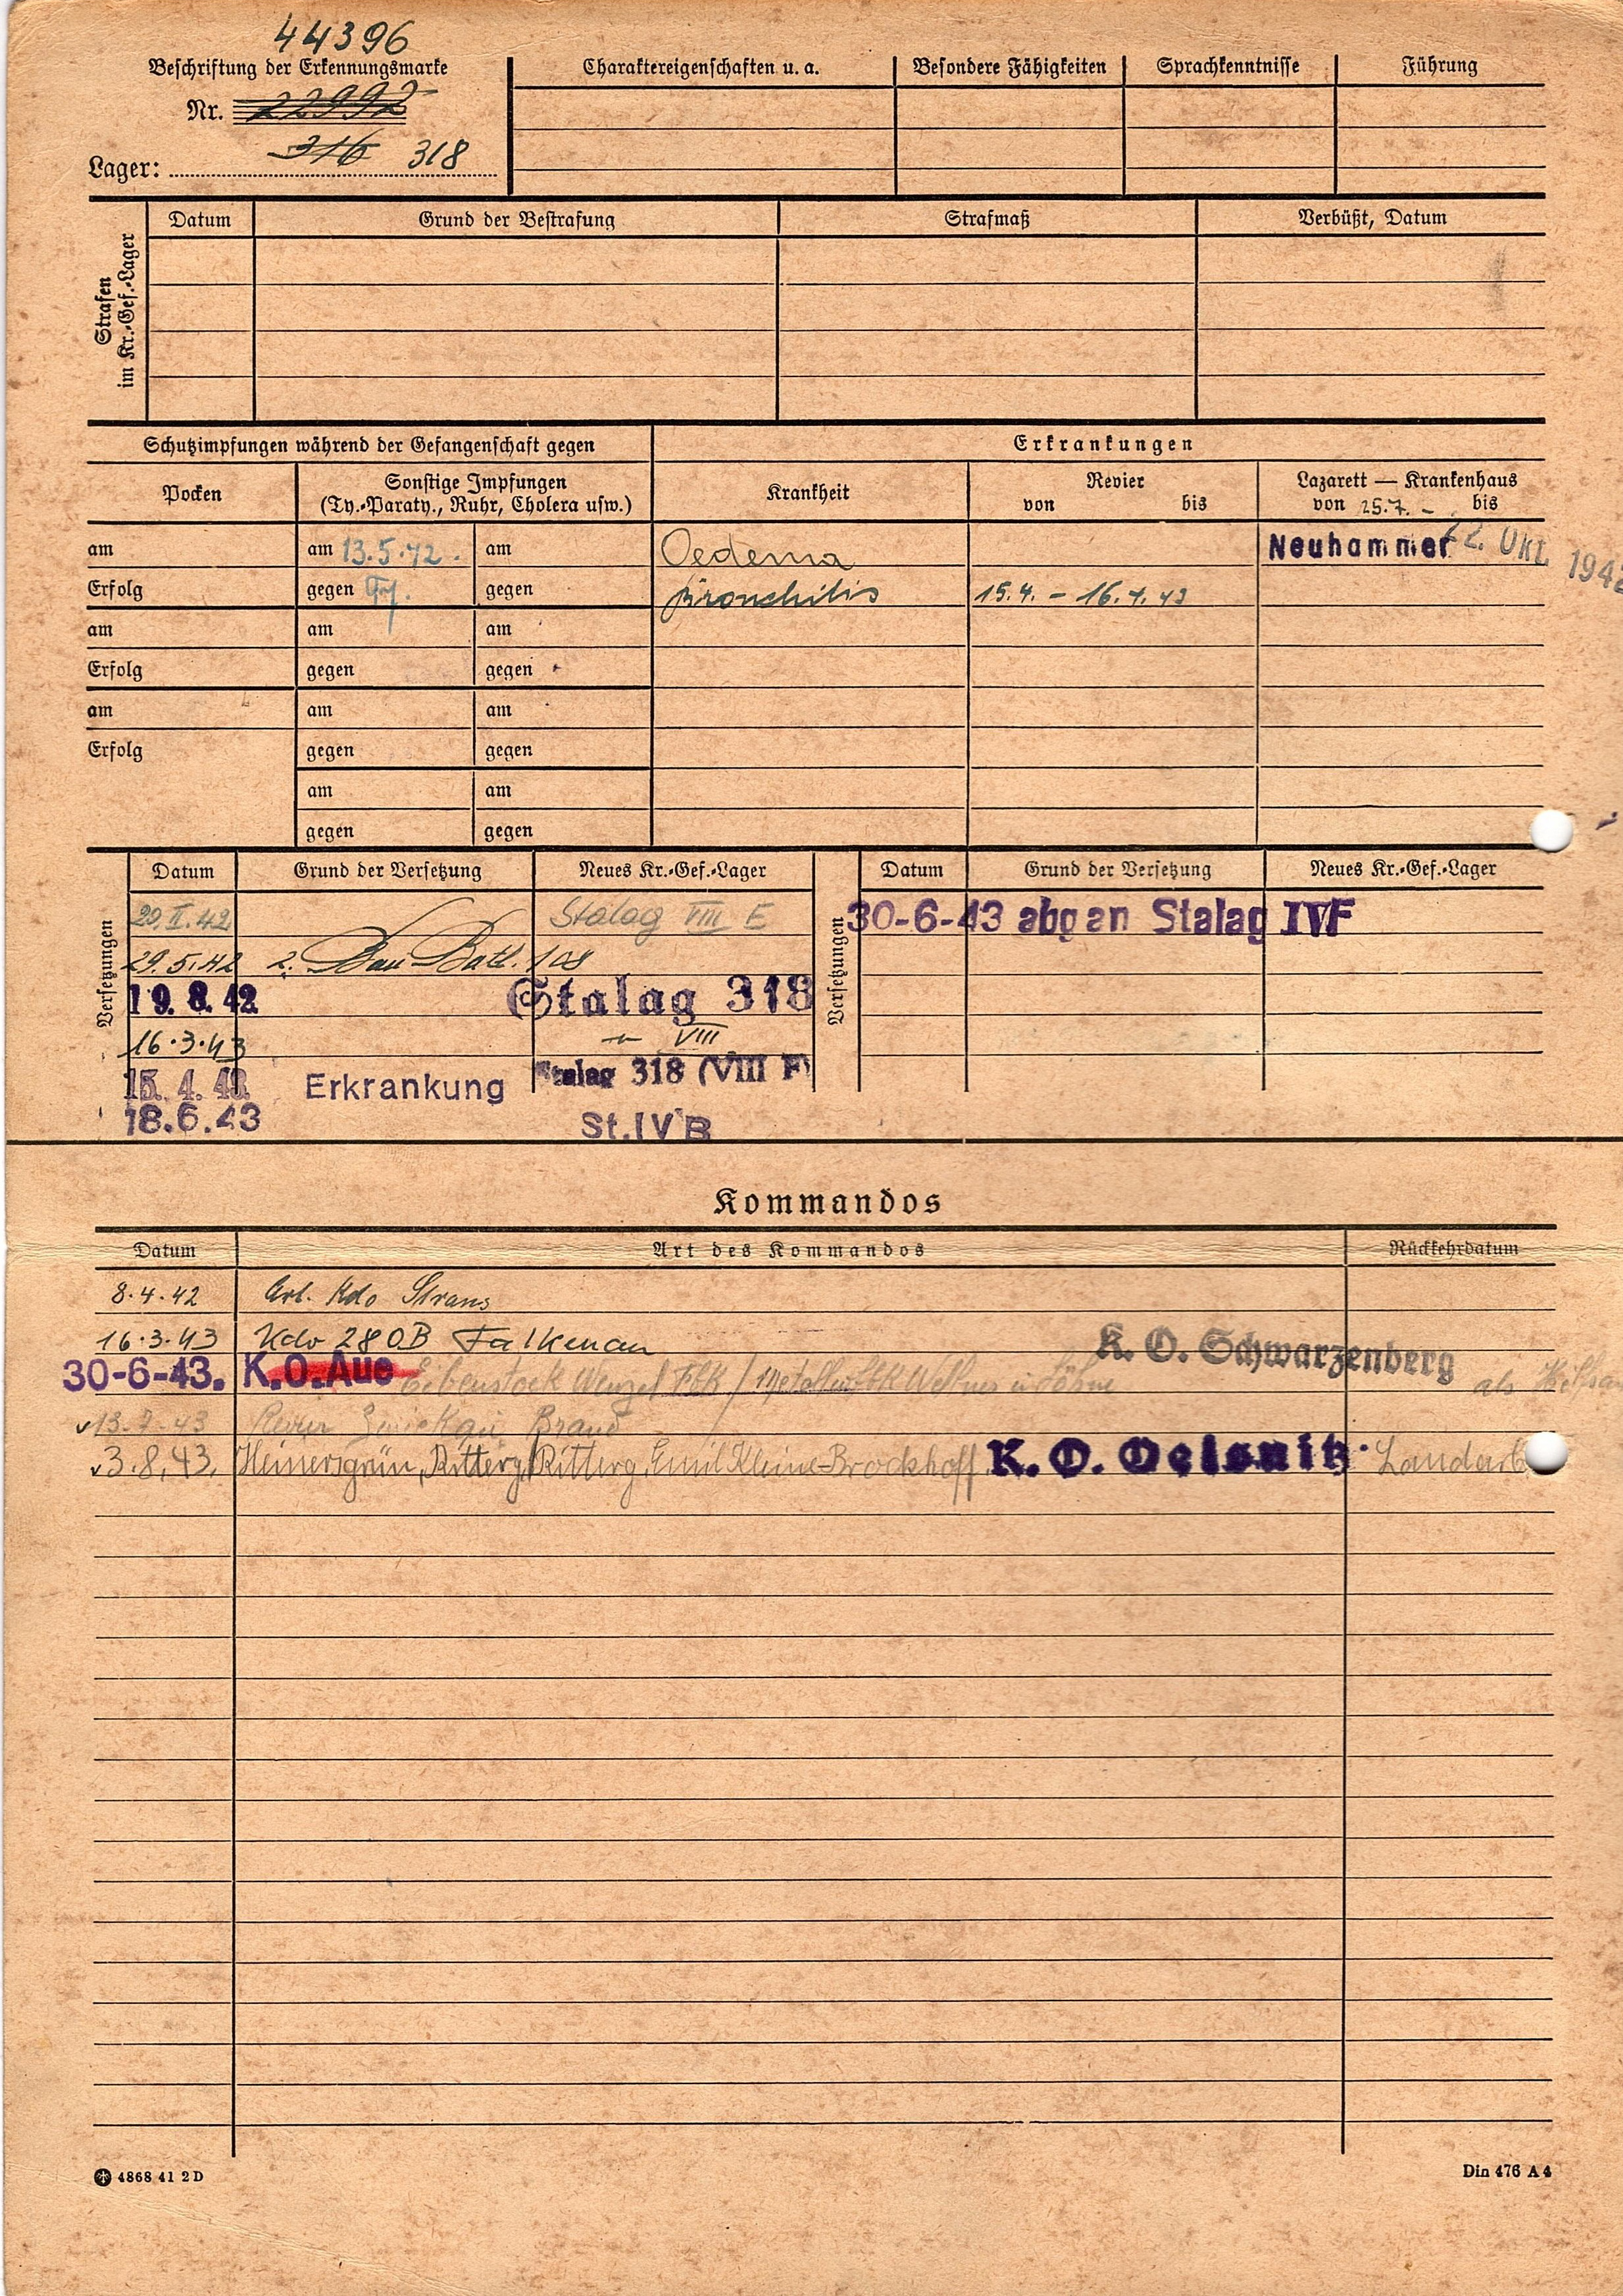 44396
Beschriftung der Erkennungsmarke
Nr. 22992
Lager: 316 318
Charaktereigenschaften u. a. Besondere Fähigkeiten Sprachkenntnisse Führung
Strafen im Kr.-Gef.-Lager
Datum Grund der Bestrafung Strafmaß Verbüßt, Datum
Schutzimpfungen während der Gefangenschaft gegen Erkrankungen
Pocken Sonstige Impfungen Krankheit Revier Lazarett — Krankenhaus
(Ty.-Paraty., Ruhr, Cholera usw.) von bis von 25.7. - bis
am am 13.5.42. am Oedema Neuhammer 22. OKT. 1942
Erfolg gegen Ty. gegen Bronchitis 15.4. - 16.4.43
am am am
Erfolg gegen gegen
am am am
Erfolg gegen gegen
am am
gegen gegen
Versetzungen
Datum Grund der Versetzung Neues Kr.-Gef.-Lager
20.II.42 Stalag VIII E
29.5.42 2. Bau Batl. 108
19.8.42 Stalag 318
16.3.43 VIII
15.4.43 Erkrankung Stalag 318 (VIII F)
18.6.43 St.IVB
Versetzungen
Datum Grund der Versetzung Neues Kr.-Gef.-Lager
30-6-43 abgan Stalag IVF
Kommandos
Datum Art des Kommandos Rückkehrdatum
8.4.42 Arb. Kdo Strans
16.3.43 Kdo 280B Falkenau
30-6-43. K.O.Aue Eibenstock Wenzel Fbk / Metallw. Fbk Wellner u Söhne K. O. Schwarzenberg als
13.7.43 Revier Zwickau Brand
3.8.43. Heinersgrün, Ritterg. Ritterg. Emil Kleine-Brockhoff K. O. Oelsnitz. Landarb
4868 41 2 D
Din 476 A 4